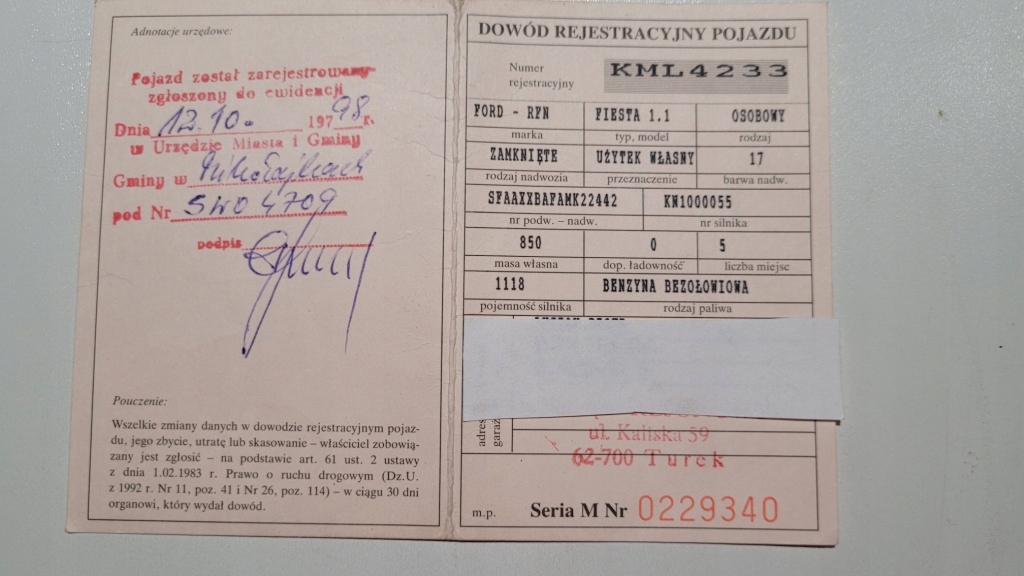 Adnotacje urzędowe:
Pojazd został zarejestrowany
zgłoszony do ewidencji
Dnia 12.10. 1998 r.
w Urzędzie Miasta i Gminy
Gminy w Mikołajkach
pod Nr SWO 4709
podpis
Pouczenie:
Wszelkie zmiany danych w dowodzie rejestracyjnym pojaz-
du, jego zbycie, utratę lub skasowanie – właściciel zobowią-
zany jest zgłosić – na podstawie art. 61 ust. 2 ustawy
z dnia 1.02.1983 r. Prawo o ruchu drogowym (Dz.U.
z 1992 r. Nr 11, poz. 41 i Nr 26, poz. 114) – w ciągu 30 dni
organowi, który wydał dowód.
DOWÓD REJESTRACYJNY POJAZDU
Numer
rejestracyjny
KML4233
FORD - RFN FIESTA 1.1 OSOBOWY
marka typ, model rodzaj
ZAMKNIĘTE UŻYTEK WŁASNY 17
rodzaj nadwozia przeznaczenie barwa nadw.
SFAAXXBAFAMK22442 KN1000055
nr podw. – nadw. nr silnika
850 0 5
masa własna dop. ładowność liczba miejsc
1118 BENZYNA BEZOŁOWIOWA
pojemność silnika rodzaj paliwa
adres
garaż
ul. Kaliska 59
62-700 Turek
m.p. Seria M Nr 0229340